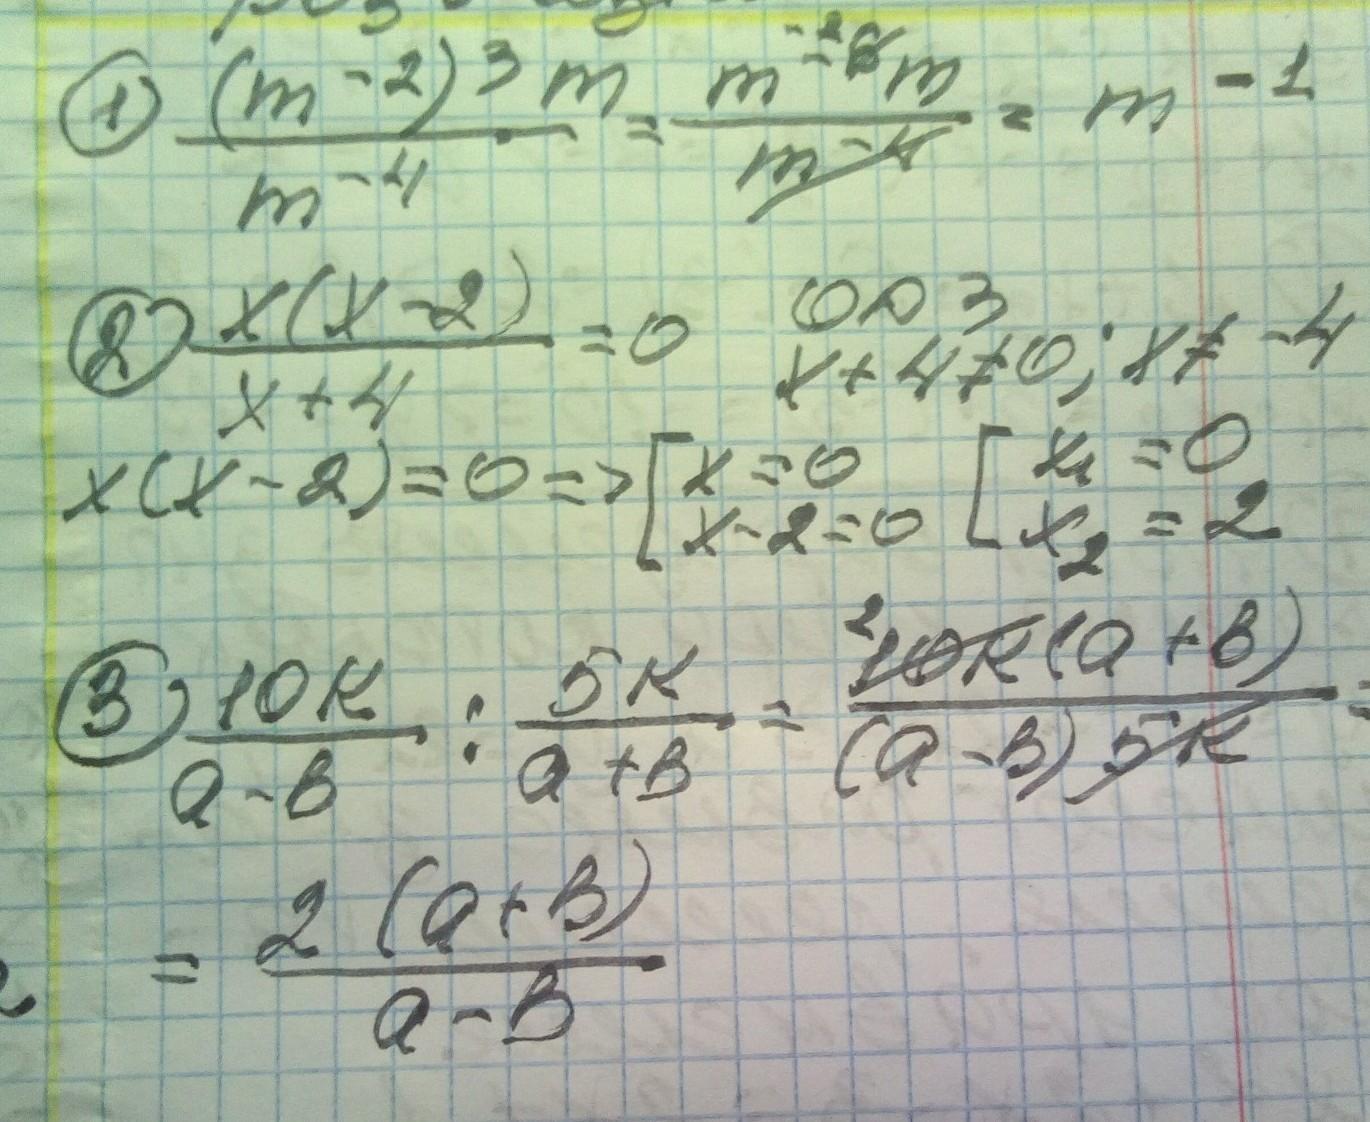 ① (m⁻²)³ m / m⁻⁴ = m⁻⁶ m / m⁻⁴ = m⁻¹
② x(x-2) / x+4 = 0 ОДЗ
x+4≠0; x≠-4
x(x-2)=0=> [x=0 [x₁=0
x-2=0 x₂=2
③ 10к / a-в : 5к / a+в = 2 10к(a+в) / (a-в)5к =
= 2(a+в) / a-в